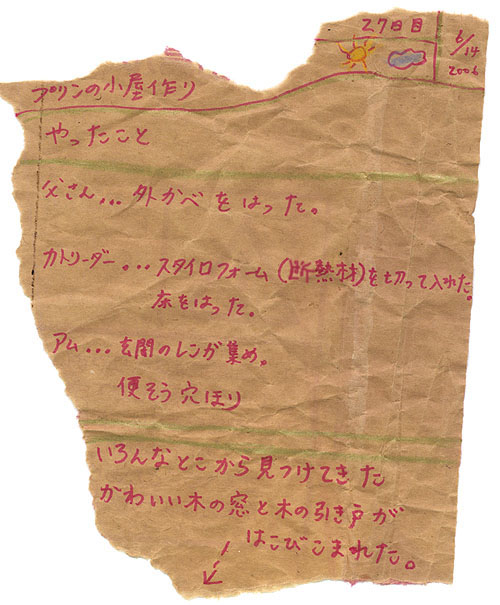 27日目
6/14
2006
プリンの小屋作り
やったこと
父さん...外かべをはった。
カトリーダー...スタイロフォーム(断熱材)を切って入れた。
床をはった。
アム...玄関のレンガ集め。
便そう穴ほり
いろんなとこから見つけてきた
かわいい木の窓と木の引き戸が
はこびこまれた。